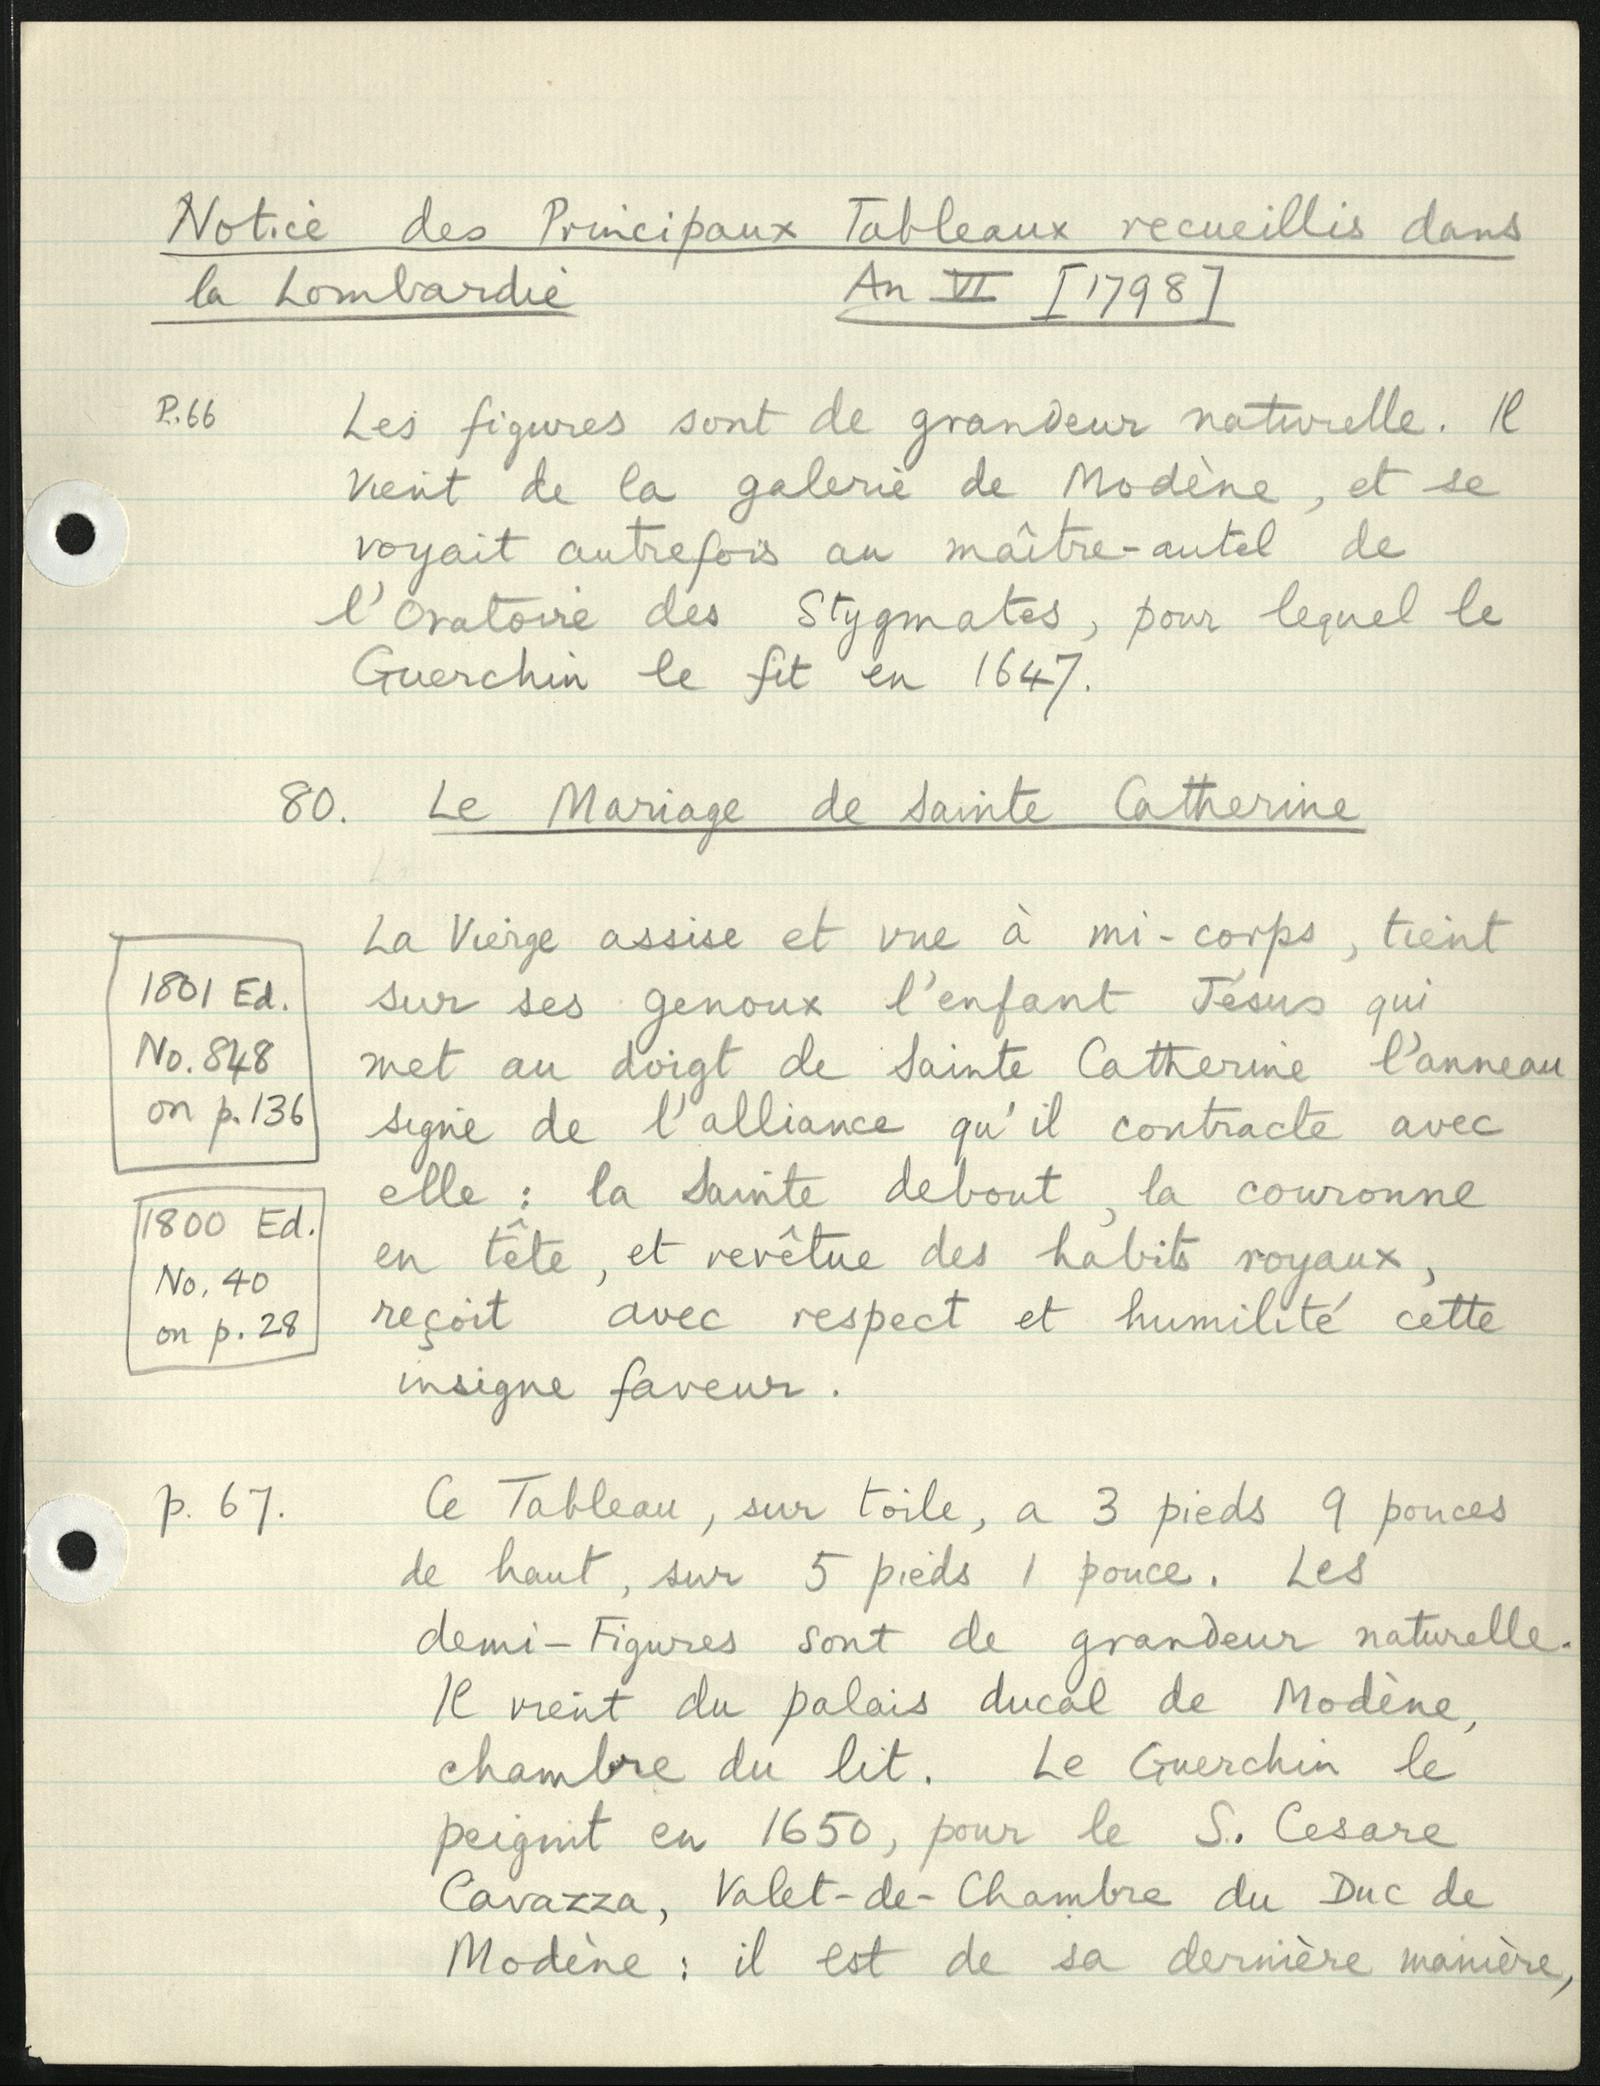 Notice des Principaux Tableaux recueillis dans
la Lombardie An VI [1798]
P.66 Les figures sont de grandeur naturelle. Il
vient de la galerie de Modène, et se
voyait autrefois au maître-autel de
l'Oratoire des Stygmates, pour lequel le
Guerchin le fit en 1647.
80. Le Mariage de Sainte Catherine
La Vierge assise et vue à mi-corps, tient
sur ses genoux l'enfant Jésus qui
met au doigt de Sainte Catherine l'anneau
signe de l'alliance qu'il contracte avec
elle : la Sainte debout, la couronne
en tête, et revêtue des habits royaux,
reçoit avec respect et humilité cette
insigne faveur.
1801 Ed.
No. 848
on p. 136
1800 Ed.
No. 40
on p. 28
p. 67. Ce Tableau, sur toile, a 3 pieds 9 pouces
de haut, sur 5 pieds 1 pouce. Les
demi-Figures sont de grandeur naturelle.
Il vient du palais ducal de Modène,
chambre du lit. Le Guerchin le
peignit en 1650, pour le S. Cesare
Cavazza, Valet-de-Chambre du Duc de
Modène : il est de sa dernière manière,